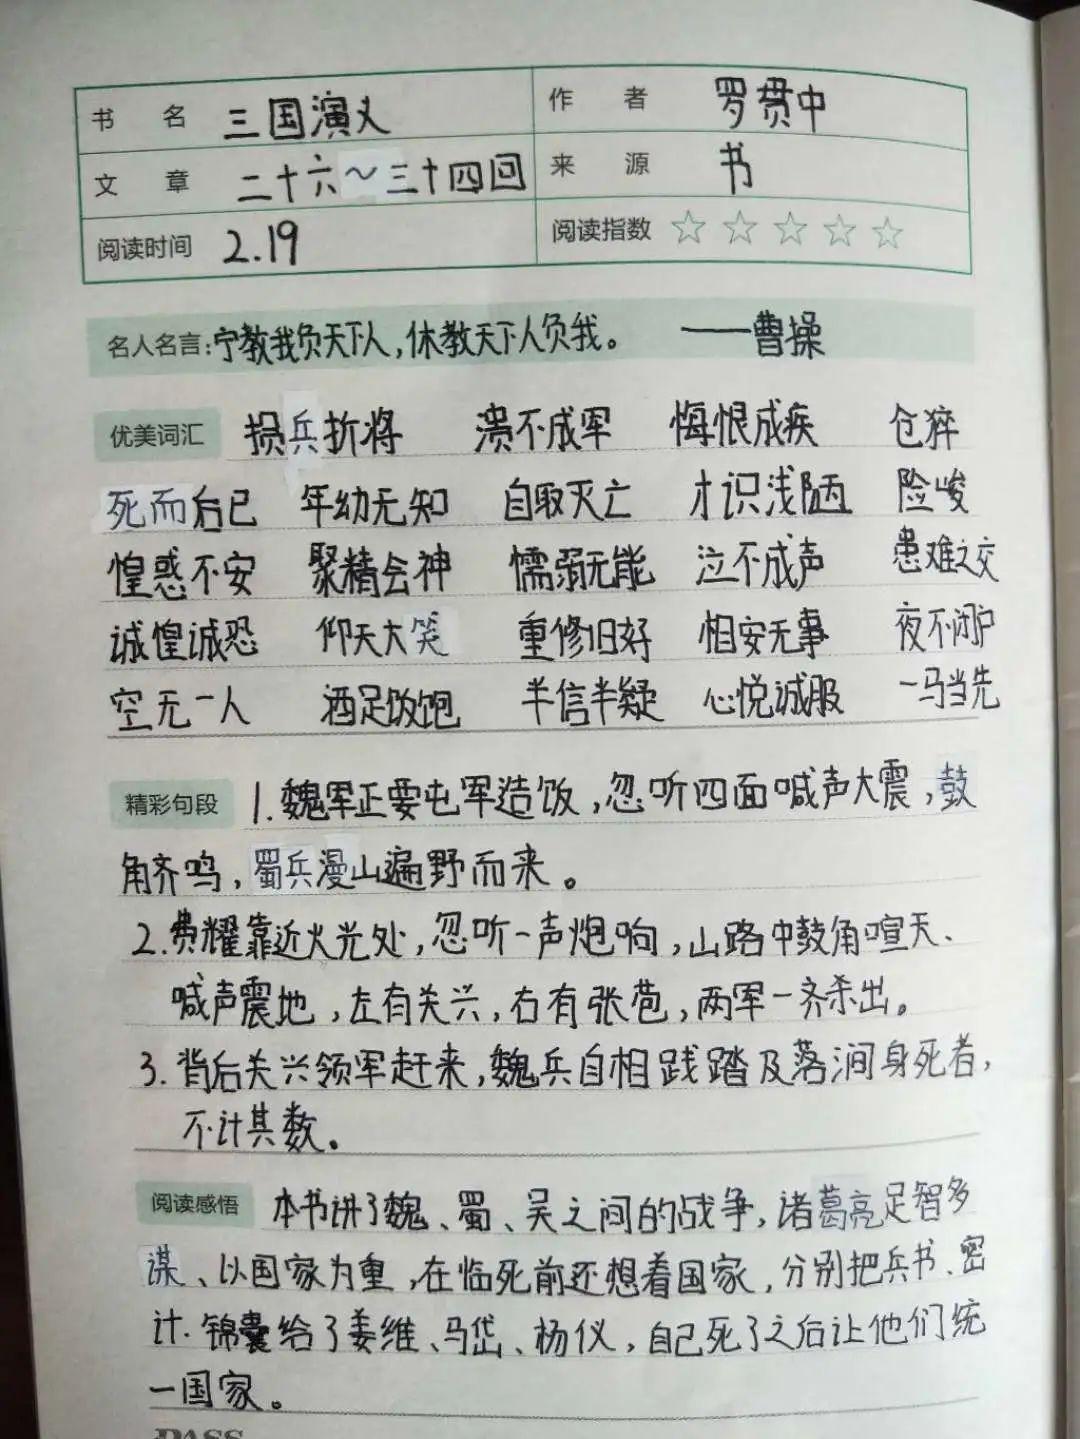 书 名 三国演义 作 者 罗贯中
文 章 二十六～三十四回 来 源 书
阅读时间 2.19 阅读指数 ☆☆☆☆☆
名人名言:宁教我负天下人,休教天下人负我。 ——曹操
优美词汇 损兵折将 溃不成军 悔恨成疾 仓猝
死而后已 年幼无知 自取灭亡 才识浅陋 险峻
惶惑不安 聚精会神 懦弱无能 泣不成声 患难之交
诚惶诚恐 仰天大笑 重修旧好 相安无事 夜不闭户
空无一人 酒足饭饱 半信半疑 心悦诚服 一马当先
精彩句段 1.魏军正要屯军造饭,忽听四面喊声大震,鼓
角齐鸣,蜀兵漫山遍野而来。
2.费耀靠近火光处,忽听一声炮响,山路中鼓角喧天、
喊声震地,左有关兴,右有张苞,两军一齐杀出。
3.背后关兴领军赶来,魏兵自相践踏及落涧身死者,
不计其数。
阅读感悟 本书讲了魏、蜀、吴之间的战争,诸葛亮足智多
谋、以国家为重,在临死前还想着国家,分别把兵书、密
计、锦囊给了姜维、马岱、杨仪,自己死了之后让他们统
一国家。
PASS